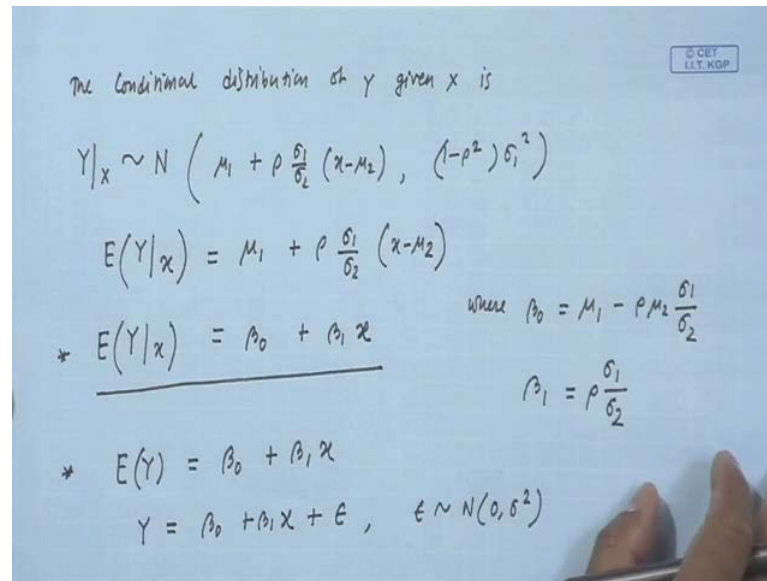 © CET
I.I.T. KGP
The Conditional distribution of Y given X is
Y|x ~ N ( μ₁ + ρ σ₁/σ₂ (x-μ₂) , (1-ρ²) σ₁² )
E(Y|x) = μ₁ + ρ σ₁/σ₂ (x-μ₂)
* E(Y|x) = β₀ + β₁ x
where β₀ = μ₁ - ρ μ₂ σ₁/σ₂
β₁ = ρ σ₁/σ₂
* E(Y) = β₀ + β₁ x
Y = β₀ + β₁ x + ϵ , ϵ ~ N(0, σ²)